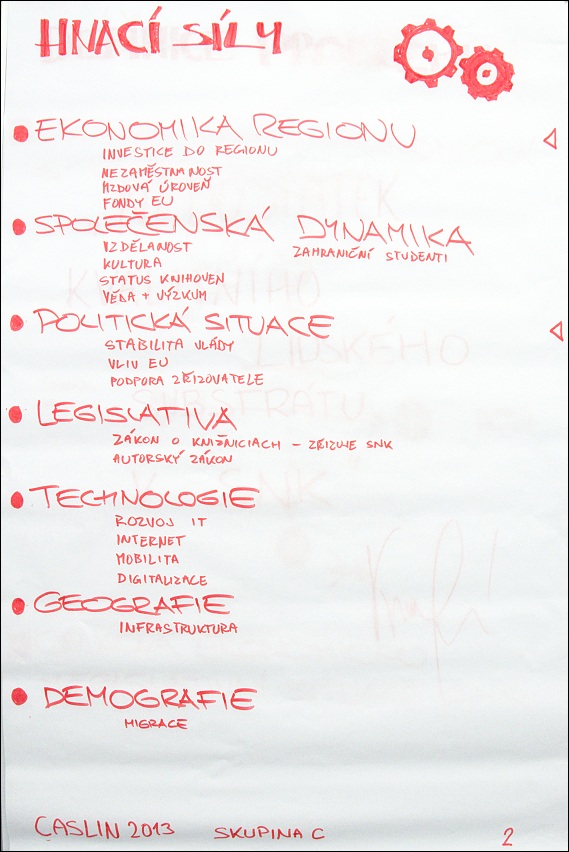 HNACÍ SÍLY
EKONOMIKA REGIONU
INVESTICE DO REGIONU
NEZAMĚSTNANOST
MZDOVÁ ÚROVEŇ
FONDY EU
SPOLEČENSKÁ DYNAMIKA
VZDĚLANOST
ZAHRANIČNÍ STUDENTI
KULTURA
STATUS KNIHOVEN
VĚDA + VÝZKUM
POLITICKÁ SITUACE
STABILITA VLÁDY
VLIV EU
PODPORA ZŘIZOVATELE
LEGISLATIVA
ZÁKON O KNIŽNICIACH – ZŘIZUJE SNK
AUTORSKÝ ZÁKON
TECHNOLOGIE
ROZVOJ IT
INTERNET
MOBILITA
DIGITALIZACE
GEOGRAFIE
INFRASTRUKTURA
DEMOGRAFIE
MIGRACE
CASLIN 2013 SKUPINA C 2